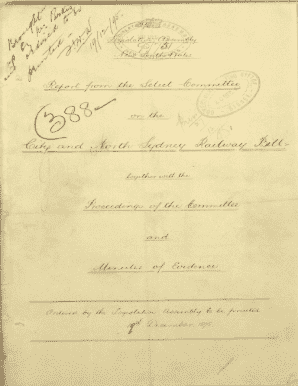 Brought
up by
ordered to be
printed
19/12/90
Legislative Assembly
New South Wales
Report from the Select Committee
388-
on the
City and North Sydney Railway Bill
together with the
Proceedings of the Committee
and
Minutes of Evidence
Ordered by the Legislative Assembly to be printed
December